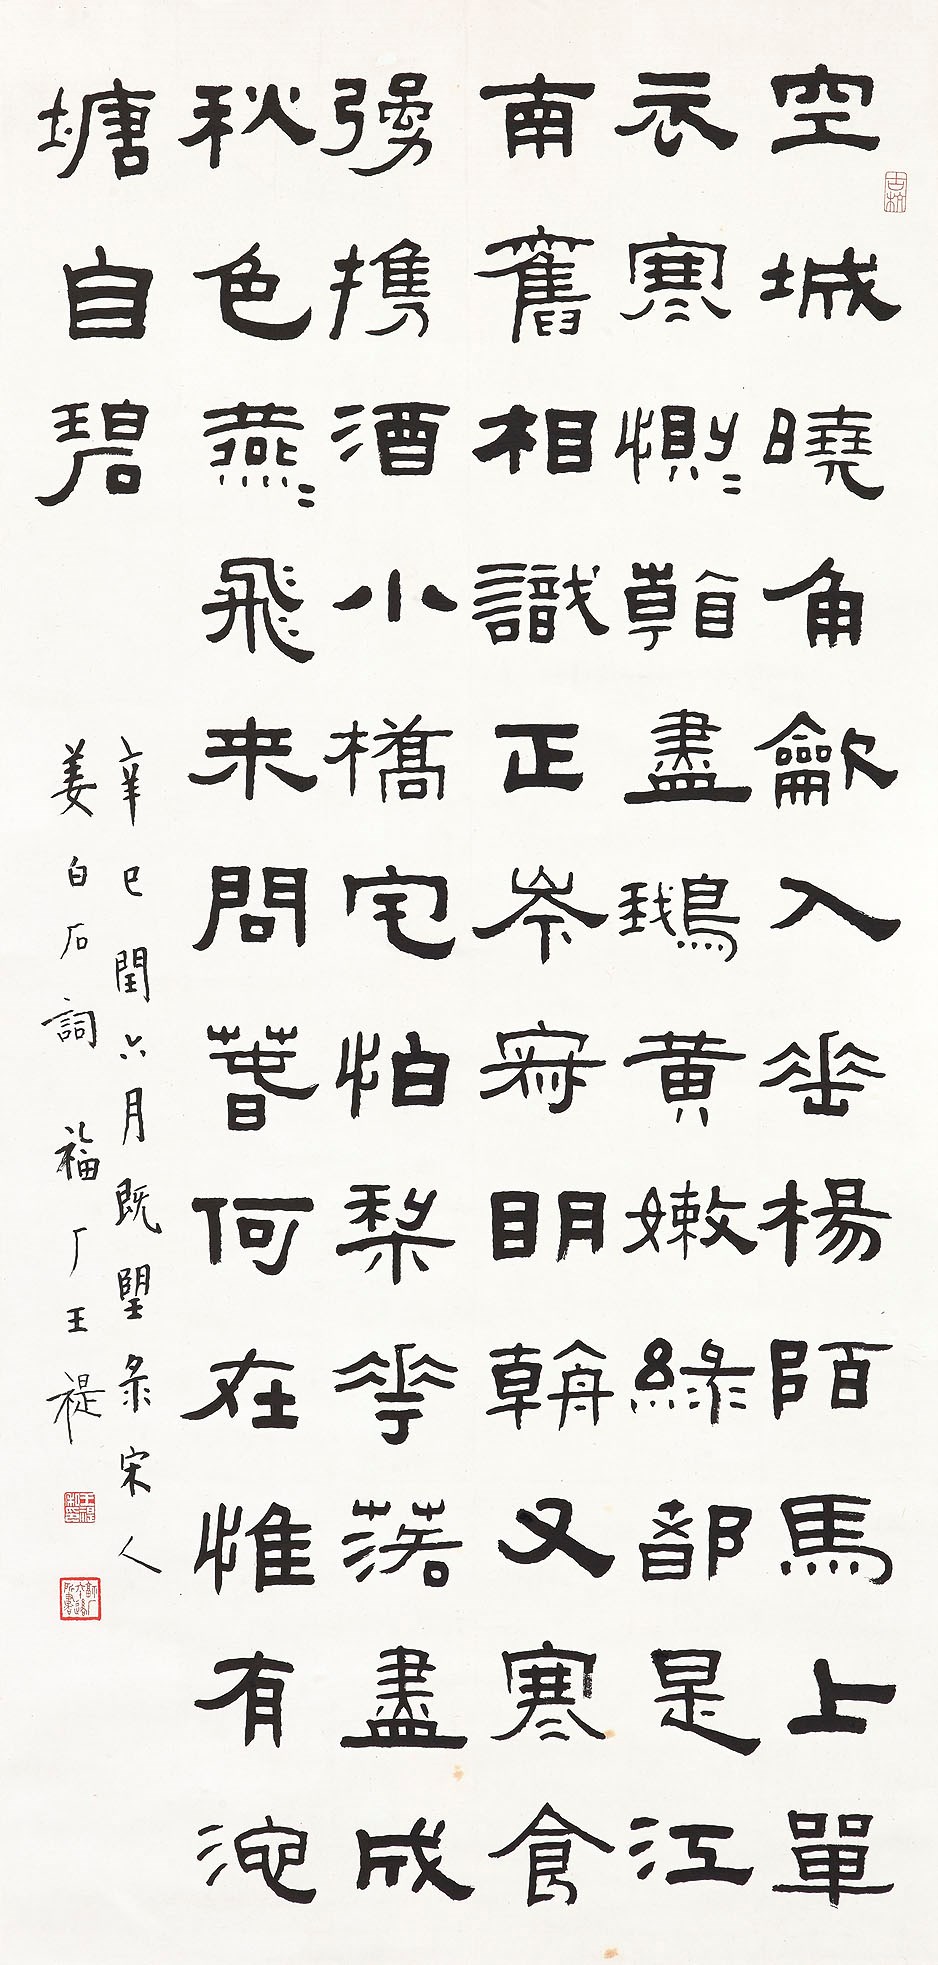 空城曉角龡入垂楊陌馬上單
衣寒惻〻看盡鵝黃嫩綠都是江
南舊相識正岑寂明朝又寒食
彊攜酒小橋宅怕梨花落盡成
秋色燕〻飛来問春何在惟有池
塘自碧
辛巳閏六月既望彔宋人
姜白石詞 福厂王禔
古杭
福厂六十後所書